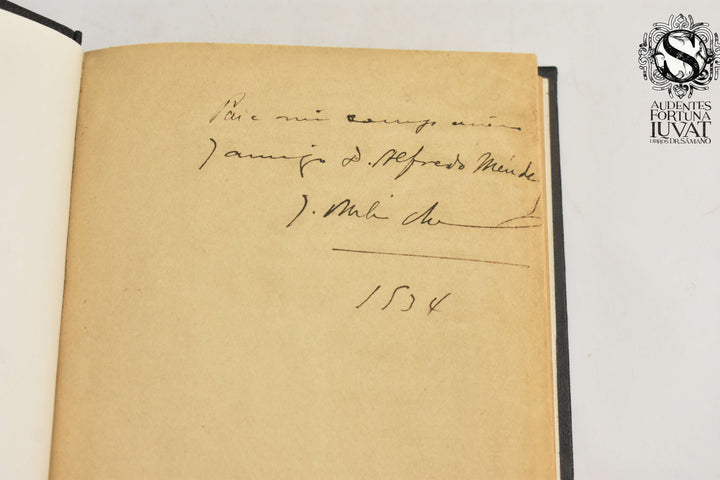 Para mi compañero
y amigo D. Alfredo Ménde
J.
1934
S
AUDENTES
FORTUNA
IUVAT
LIBROS DR. SÁMANO